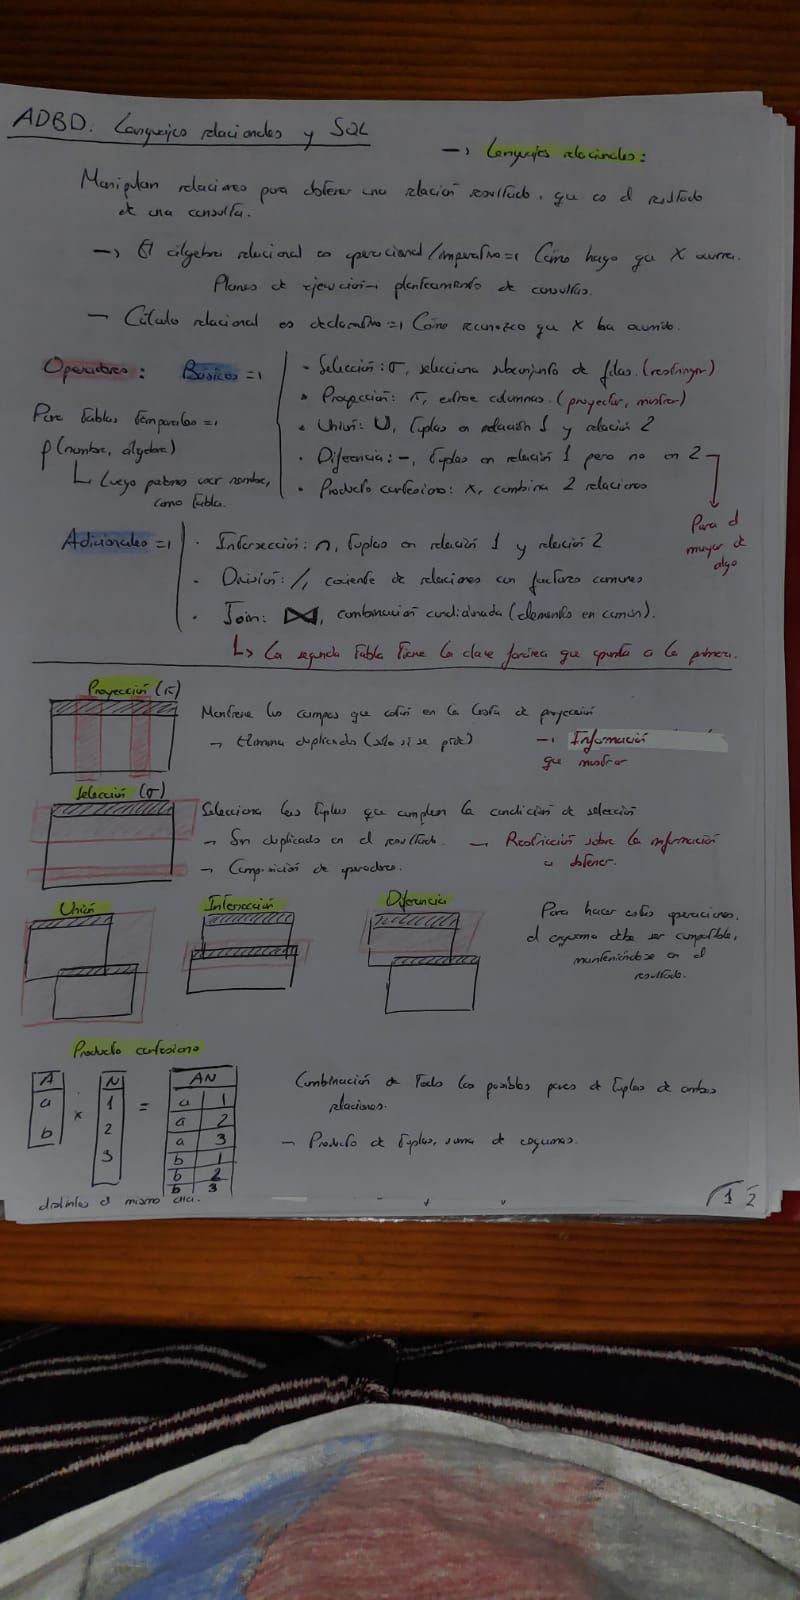 ADBD: Lenguajes relacionales y SQL
→ Lenguajes relacionales:
Manipulan relaciones para obtener una relación resultado, que es el resultado
de una consulta.
→ El álgebra relacional es operacional/imperativo => Cómo hago que X ocurra.
Planes de ejecución → planteamiento de consultas.
- Cálculo relacional es declarativo => Cómo reconozco que X ha ocurrido.
Operadores: Básicos =>
· Selección: σ, selecciona subconjunto de filas. (restringir)
· Proyección: π, extrae columnas. (proyectar, mostrar)
· Unión: U, tuplas en relación 1 y relación 2
· Diferencia: -, tuplas en relación 1 pero no en 2
· Producto cartesiano: x, combina 2 relaciones
Para tablas temporales =>
ρ(nombre, álgebra)
↳ Luego podemos usar nombre,
como tabla.
Para el
mayor de
algo
Adicionales =>
· Intersección: ∩, tuplas en relación 1 y relación 2
· División: /, cociente de relaciones con factores comunes
· Join: ⋈, combinación condicionada (elementos en común).
↳ La segunda tabla tiene la clave foránea que apunta a la primera.
Proyección (π)
Mantiene los campos que están en la lista de proyección
→ Elimina duplicados (sólo si se pide)
→ Información
que mostrar
Selección (σ)
Selecciona las tuplas que cumplen la condición de selección
→ Sin duplicado en el resultado.
→ Restricción sobre la información
a obtener.
→ Composición de operadores.
Unión
Intersección
Diferencia
Para hacer estas operaciones,
el esquema debe ser compatible,
manteniéndose en el
resultado.
Producto cartesiano
A
a
b
x
N
1
2
3
=
AN
a 1
a 2
a 3
b 1
b 2
b 3
Combinación de todos los posibles pares de tuplas de ambas
relaciones.
- Producto de tuplas, suma de esquemas.
distintas el mismo día.
1 2